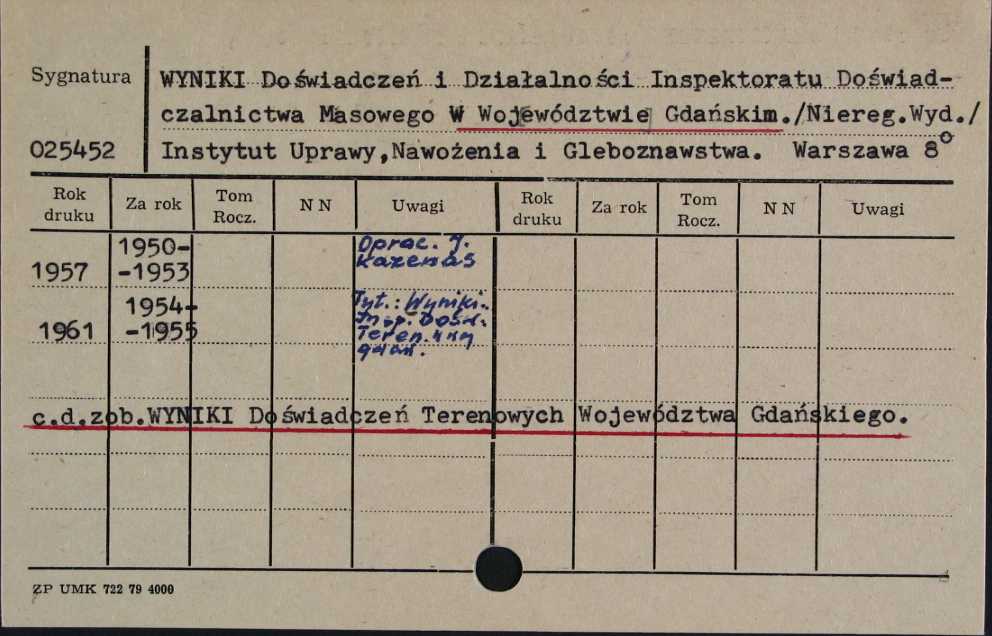 Sygnatura WYNIKI Doświadczeń i Działalności Inspektoratu Doświad-
czalnictwa Masowego W Województwie Gdańskim./Niereg.Wyd./
025452 Instytut Uprawy,Nawożenia i Gleboznawstwa. Warszawa 8°
Rok druku Za rok Tom Rocz. N N Uwagi Rok druku Za rok Tom Rocz. N N Uwagi
1950- Oprac. J.
1957 -1953 Kazenas
1954- Tyt.: Wyniki..
Insp. Dośw.
1961 -1955 Teren.
gdań.
c.d.zob.WYNIKI Doświadczeń Terenowych Województwa Gdańskiego.
ZP UMK 722 79 4000